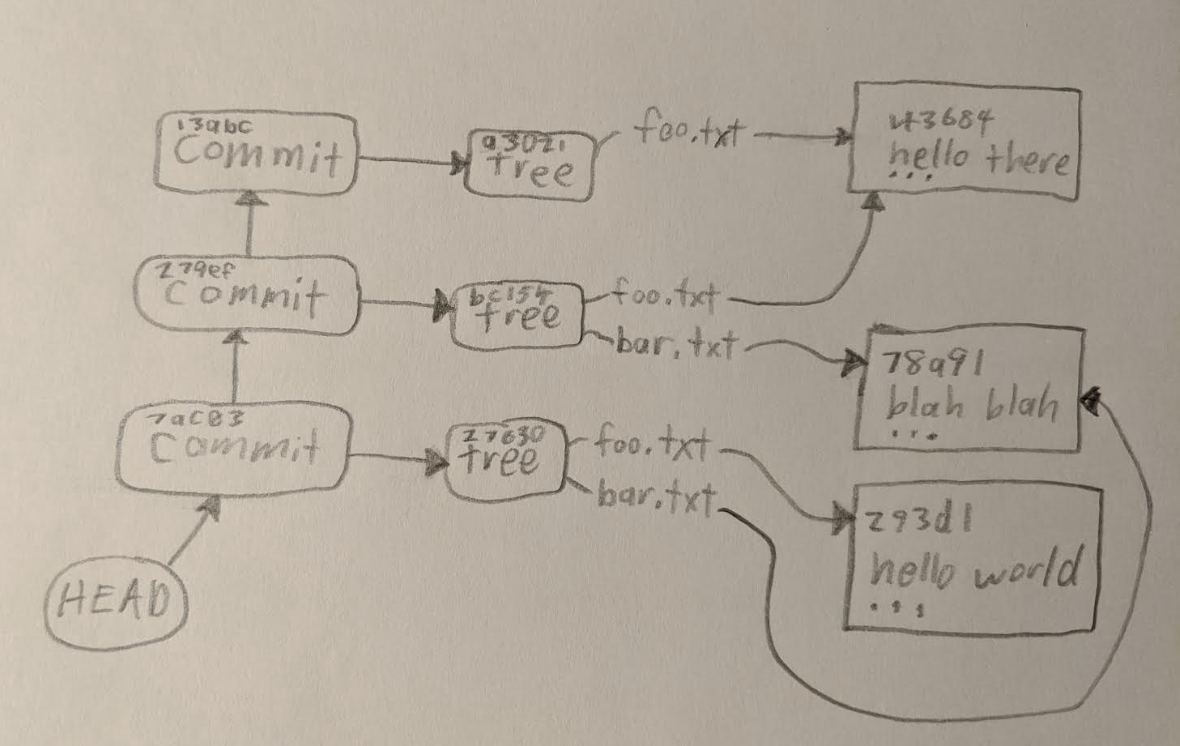 13abc
Commit
a3021
tree
foo.txt
43684
hello there
...
279ef
Commit
bc154
tree
foo.txt
bar.txt
78a91
blah blah
...
7ac83
Commit
27630
tree
foo.txt
bar.txt
293d1
hello world
...
HEAD